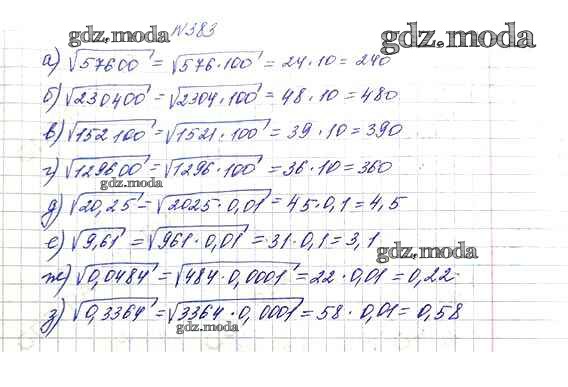 №383
gdz.moda
gdz.moda
а) √57600 = √576·100 = 24·10 = 240
б) √230400 = √2304·100 = 48·10 = 480
в) √152100 = √1521·100 = 39·10 = 390
г) √129600 = √1296·100 = 36·10 = 360
gdz.moda
д) √20,25 = √2025·0,01 = 45·0,1 = 4,5
е) √9,61 = √961·0,01 = 31·0,1 = 3,1
gdz.moda
ж) √0,0484 = √484·0,0001 = 22·0,01 = 0,22
з) √0,3364 = √3364·0,0001 = 58·0,01 = 0,58
gdz.moda